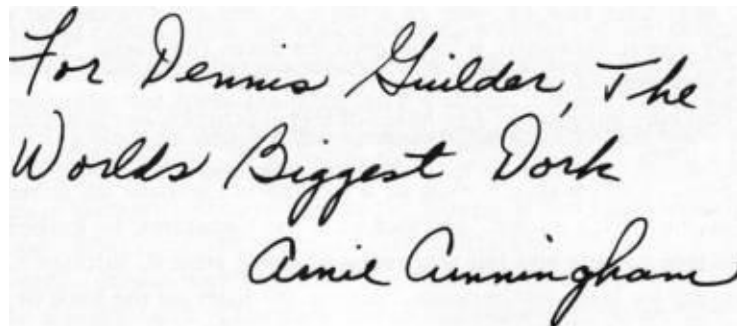 For Dennis Guilder, The
Worlds Biggest Dork
Arnie Cunningham